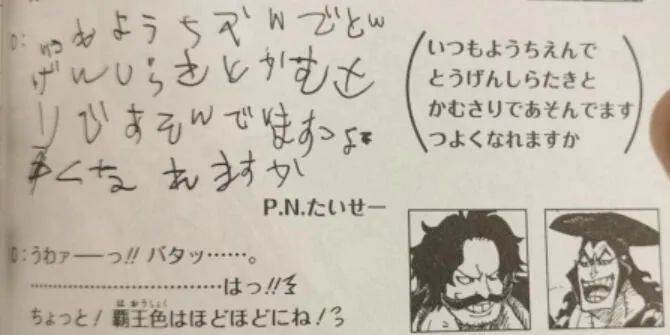 D:いつもようちえんでとう
げんしらたきとかむさ
りであそんでますつよ
くなれますか
(いつもようちえんで
とうげんしらたきと
かむさりであそんでます
つよくなれますか)
P.N.たいせー
O:うわァーーっ!! バタッ……。
……………………………はっ!!
ちょっと! 覇王色はほどほどにね!
はおうしょく